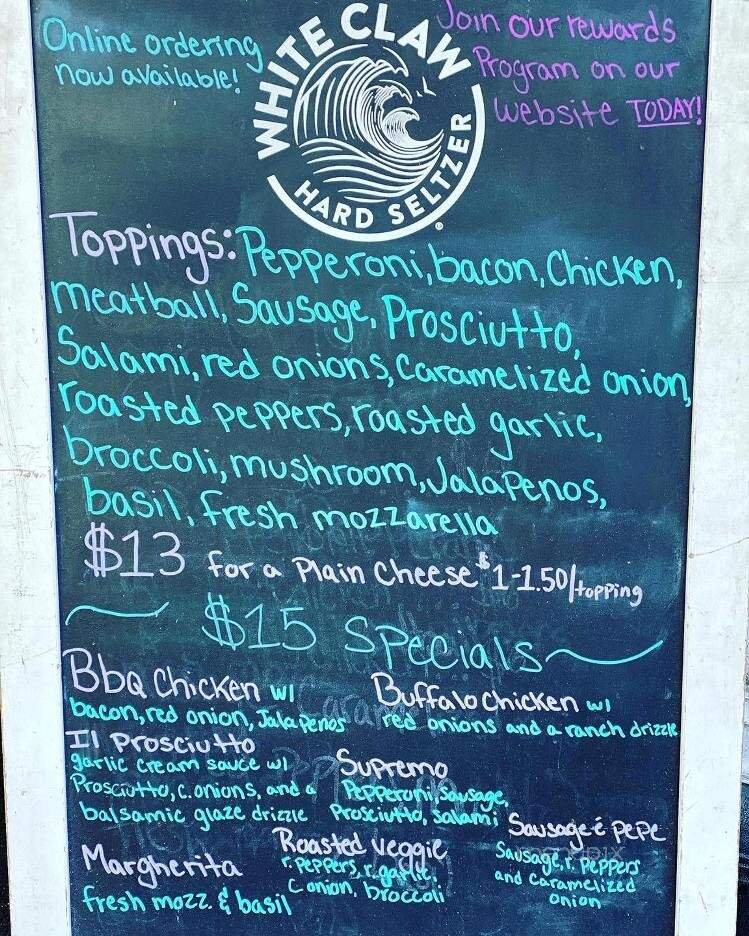 Online ordering
now available!
WHITE CLAW
HARD SELTZER
®
Join our rewards
Program on our
website TODAY!
Toppings: Pepperoni, bacon, Chicken,
meatball, Sausage, Prosciutto,
Salami, red onions, Caramelized onion,
roasted peppers, roasted garlic,
broccoli, mushroom, Jalapenos,
basil, fresh mozzarella
$13 for a Plain Cheese $1-1.50/topping
$15 Specials
Bbq Chicken w/
bacon, red onion, Jalapenos
Buffalo Chicken w/
red onions and a ranch drizzle
Il Prosciutto
garlic cream sauce w/
Prosciutto, c.onions, and a
balsamic glaze drizzle
Supremo
Pepperoni, Sausage,
Prosciutto, Salami
Margherita
fresh mozz. & basil
Roasted veggie
r. Peppers, r. garlic,
C onion, broccoli
Sausage é pepe
Sausage, r. Peppers
and Caramelized
onion